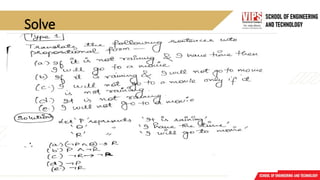 Solve
VIPS
SCHOOL OF ENGINEERING
AND TECHNOLOGY
Type 1
Translate the following sentences into
propositional form —
(a) If it is not raining & I have time then
I will go to a movie.
(b) It is raining & I will not go to movie
(c) I will not go to a movie only if it
is not raining
(d) It is not raining
(e) I will not go to a movie
Solution Let 'P' represents 'It is raining'
'Q' " 'I have the time'
'R' " 'I will go to movie'
∴ (a) (¬P∧Q)→R
(b) P∧¬R
(c) ¬R→¬P
(d) ¬P
(e) ¬R
SCHOOL OF ENGINEERING AND TECHNOLOGY